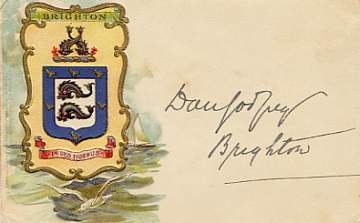 BRIGHTON
IN DEO FIDEMUS
Dan Godfrey
Brighton